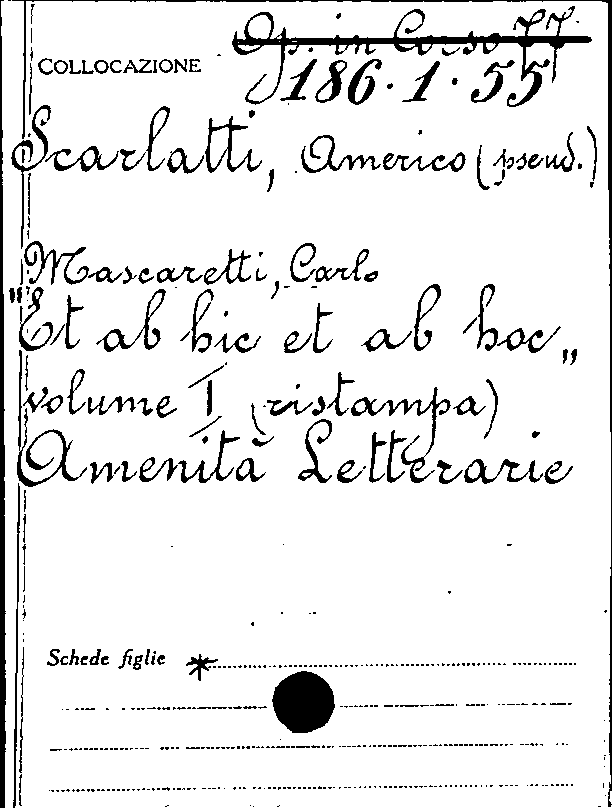 Op. in Corso 77
COLLOCAZIONE
186.1.55
Scarlatti, Americo (pseud.)
Mascaretti, Carlo
"Et ab hic et ab hoc„
volume I (ristampa)
Amenità Letterarie
Schede figlie *